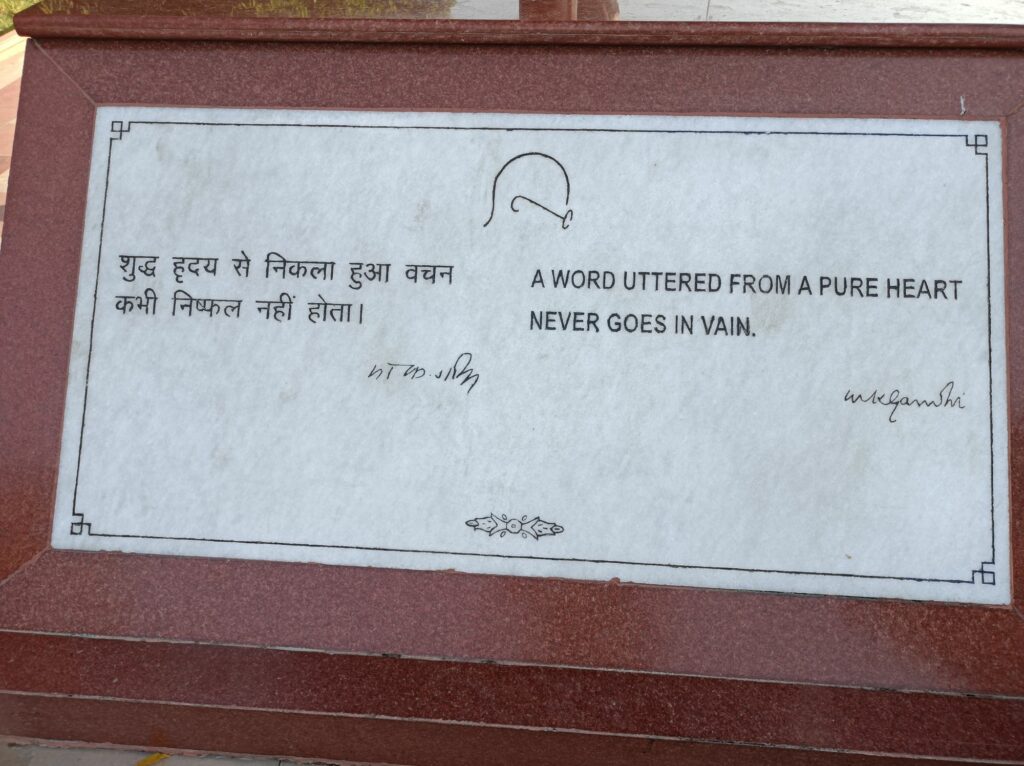 शुद्ध हृदय से निकला हुआ वचन
कभी निष्फल नहीं होता।
A WORD UTTERED FROM A PURE HEART
NEVER GOES IN VAIN.
mkgandhi